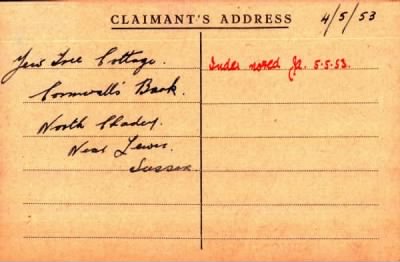 CLAIMANT'S ADDRESS
4/5/53
Yew Tree Cottage.
Cornwall's Bank.
North Chailey.
Near Lewes.
Sussex.
Index noted Ja. 5.5.53.